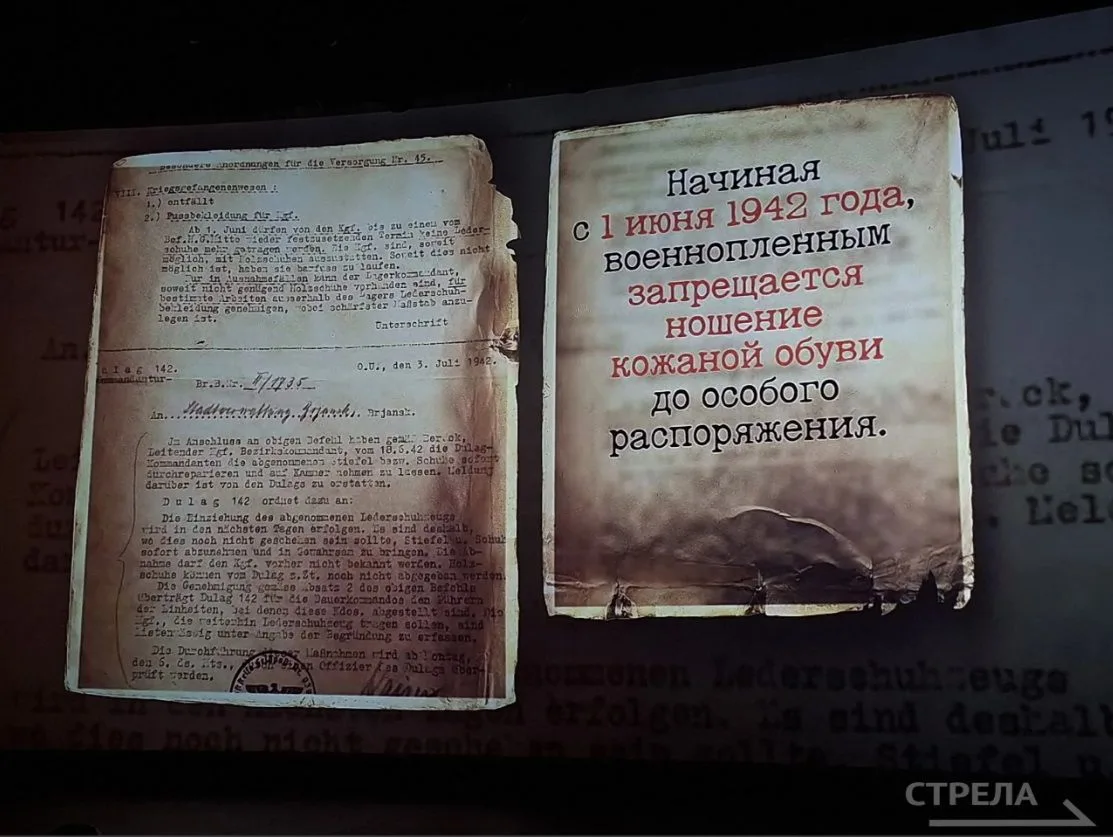 Besondere Anordnungen für die Versorgung Nr. 45.
VIII. Kriegsgefangenenwesen :
1.) entfällt
2.) Fussbekleidung für Kgf.
Ab 1. Juni dürfen von den Kgf. bis zu einem vom
Bef.H.G.Mitte wieder festzusetzenden Termin keine Leder-
schuhe mehr getragen werden. Die Kgf. sind, soweit
möglich, mit Holzschuhen auszustatten. Soweit dies nicht
möglich ist, haben sie barfuss zu laufen.
Nur in Ausnahmefällen kann der Lagerkommandant,
soweit nicht genügend Holzschuhe vorhanden sind, für
bestimmte Arbeiten ausserhalb des Lagers Lederschuh-
bekleidung genehmigen, wobei schärfster Maßstab anzu-
legen ist.
Unterschrift
ulag 142.
O.U., den 3. Juli 1942.
Kommandantur-
Br.B.Nr. II/1835
An. Stadtverwaltung Brjansk, Brjansk.
Im Anschluss an obigen Befehl haben gemäß Berück,
Leitender Kgf. Bezirkskommandant, vom 18.6.42 die Dulag-
Kommandanten die abgenommenen Stiefel bezw. Schuhe sofort
durchreparieren und auf Kammer nehmen zu lassen. Meldung
darüber ist von den Dulags zu erstatten.
Dulag 142 ordnet dazu an:
Die Einziehung des abgenommenen Lederschuhzeugs
wird in den nächsten Tagen erfolgen. Es sind deshalb,
wo dies noch nicht geschehen sein sollte, Stiefel u. Schuh
sofort abzunehmen und in Gewahrsam zu bringen. Die Ab-
nahme darf den Kgf. vorher nicht bekannt werden. Holz-
schuhe können vom Dulag z.Zt. noch nicht abgegeben werden.
Die Genehmigung gemäss Absatz 2 des obigen Befehls
überträgt Dulag 142 für die Dauerkommandos den Führern
der Einheiten, bei denen diese Kdos. abgestellt sind. Die
Kgf., die weiterhin Lederschuhzeug tragen sollen, sind
listenmässig unter Angabe der Begründung zu erfassen.
Die Durchführung dieser Maßnahmen wird ab Montag,
den 6. ds. Mts., von einem Offizier des Dulags über-
prüft werden.
Начиная
с 1 июня 1942 года,
военнопленным
запрещается
ношение
кожаной обуви
до особого
распоряжения.
СТРЕЛА